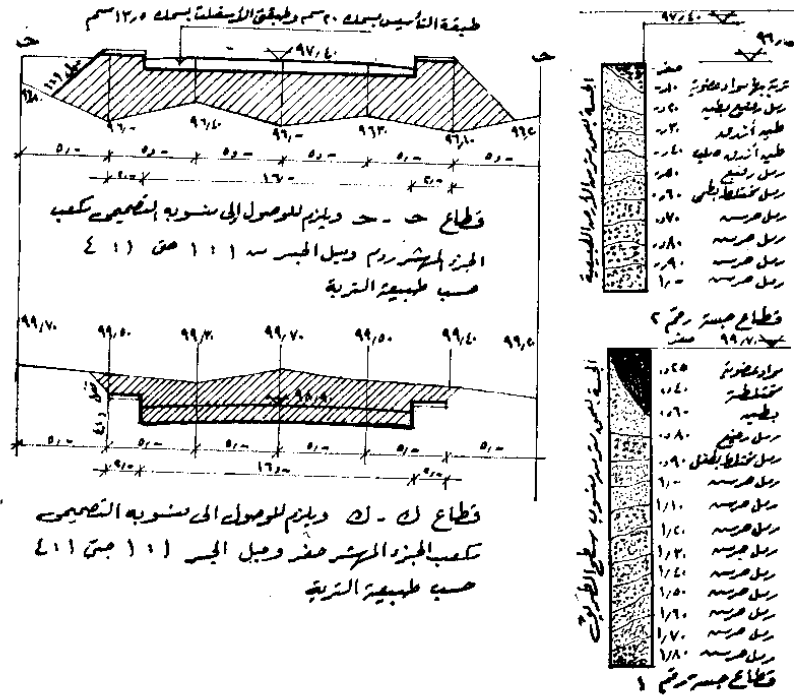 طبقة التأسيس بسمك ٢٠ سم وطبقتي الأسفلت بسمك ١٣٫٥ سم
حـ
حـ
٩٧٫٤٠
ميل
٩٦٫٠٠ ٩٦٫٤٠ ٩٦٫٠٠ ٩٦٫٣٠ ٩٦٫١٠ ٩٦٫٢٠
٥٫٠٠ ٥٫٠٠ ٥٫٠٠ ٥٫٠٠ ٥٫٠٠ ٥٫٠٠
٢٫٠٠ ١٦٫٠٠ ٢٫٠٠
قطاع حـ - حـ ويلزم للوصول إلى منسوبه التصميمى تكعب
الجزء المهشر ردم وميل الجسر من ١ : ١ حتى ١ : ٤
حسب طبيعة التربة
٩٩٫٧٠ ٩٩٫٥٠ ٩٩٫٣٠ ٩٩٫٧٠ ٩٩٫٥٠ ٩٩٫٤٠ ٩٩٫٢٠
ميل
٥٫٠٠ ٥٫٠٠ ٥٫٠٠ ٥٫٠٠ ٥٫٠٠ ٥٫٠٠
٢٫٠٠ ١٦٫٠٠ ٢٫٠٠
قطاع ك - ك ويلزم للوصول الى منسوبه التصميمى
تكعب الجزء المهشر حفر وميل الجسر ١ : ١ حتى ١ : ٤
حسب طبيعة التربة
٩٧٫٤٠
صفر
تربة بها مواد عضوية ٠٫١٠
رمل رفيع بطينه ٠٫٢٠
طينه أندرن ٠٫٣٠
طينه أندرن صلب ٠٫٤٠
رمل رفيع ٠٫٥٠
رمل مختلط بطمى ٠٫٦٠
رمل حرسه ٠٫٧٠
رمل حرسه ٠٫٨٠
رمل حرسه ٠٫٩٠
رمل حرسه ١٫٠٠
الجسة تمت من الأرض الطبيعية
قطاع جسة رقم ٢
٩٩٫٧٠ صفر
مواد عضوية ٠٫٢٥
مختلطة ٠٫٤٠
بطينه ٠٫٦٠
رمل رفيع ٠٫٨٠
رمل مختلط بالطفل ٠٫٩٠
رمل حرسه ١٫٠٠
رمل حرسه ١٫١٠
رمل حرسه ١٫٢٠
رمل حرسه ١٫٣٠
رمل حرسه ١٫٤٠
رمل حرسه ١٫٥٠
رمل حرسه ١٫٦٠
رمل حرسه ١٫٧٠
رمل حرسه ١٫٨٠
منسوب سطح الطريق
قطاع جسة رقم ١